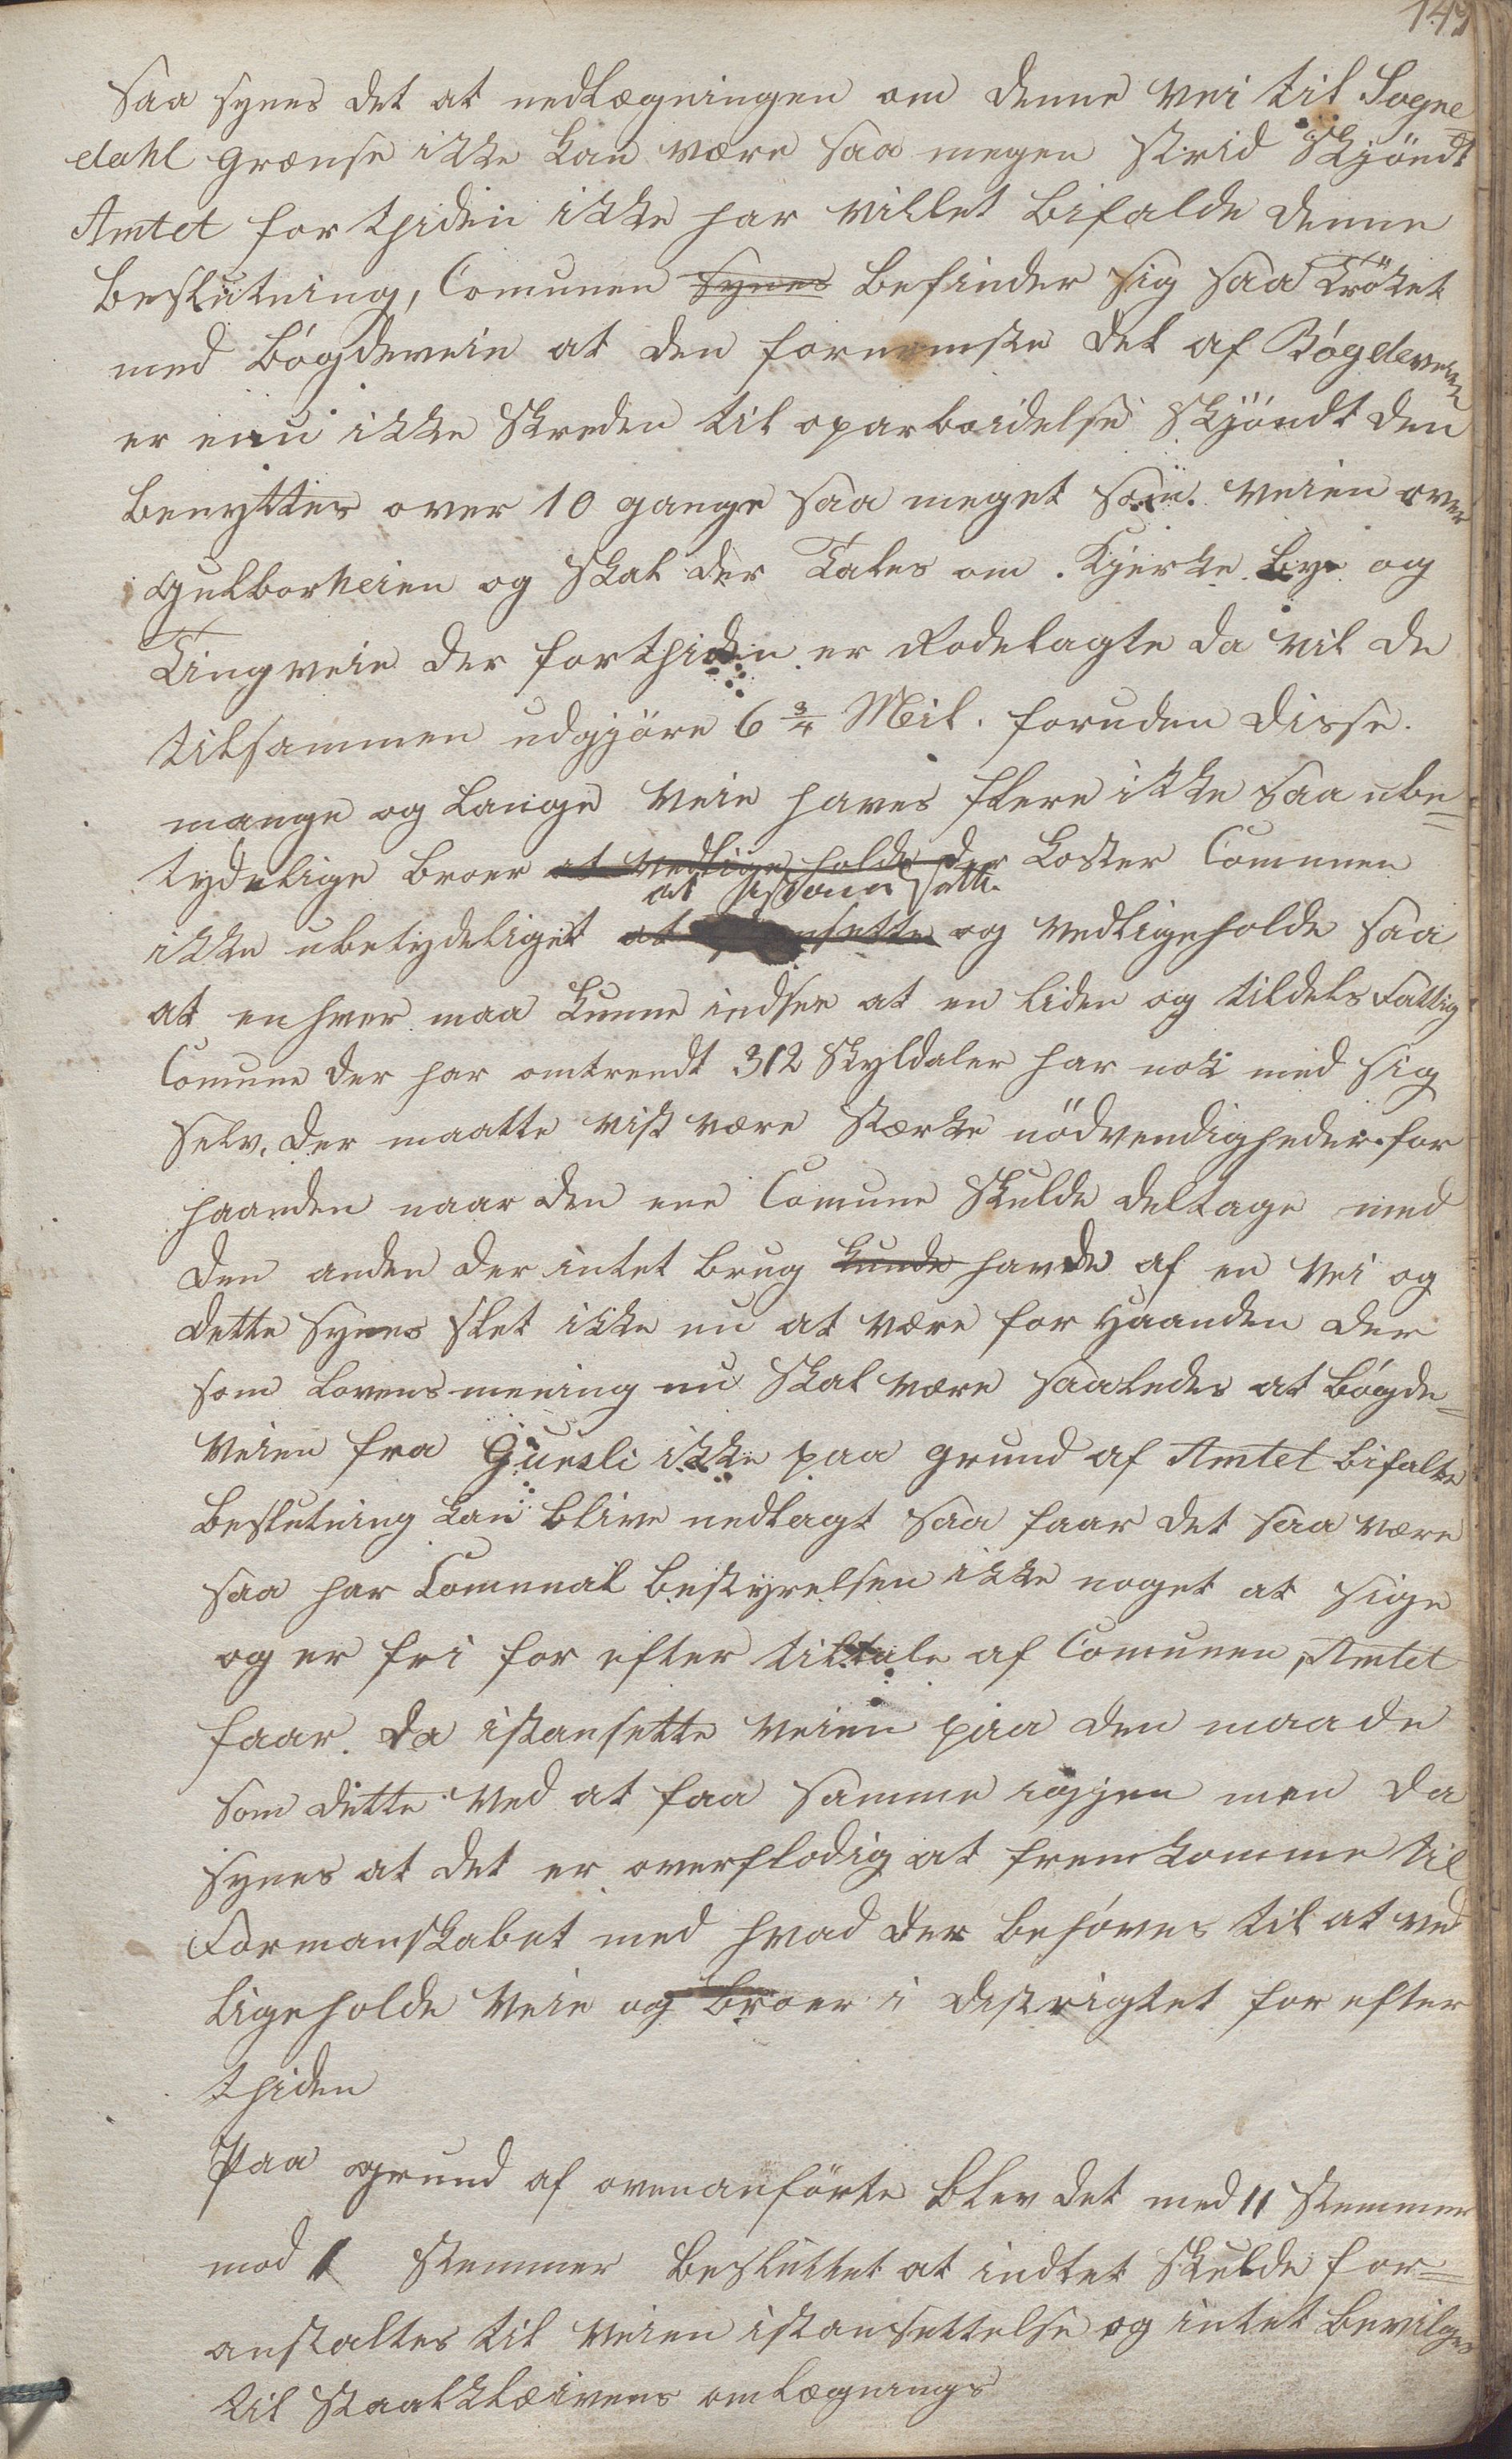 149
Saa synes det at nedlægningen om denne Vei til Sogne
dahl Grænse ikke kan være saa megen strid Skjöndt
Amtet for thiden ikke har villet bifalde denne
beslutning, Comunen Synes befinder sig saa Trökket
med Bógdeveie at den fornemste del af Bógdeveien
er enu ikke Skreden til oparbeidelse Skjöndt den
benyttes over 10 gange saa meget som Veien over
Gulborheien og Skal der Tales om Kjerke bye og
Tingveie der for thiden er Rodelagte da vil de
tilsammen udgjöre 6 3/4 Mil. foruden disse
mange og Lange Veie haves flere ikke saa ube=
tydelige broer at vedligeholde der koster Comunen
at istand sætte
ikke ubetydeliget at og vedligeholde saa
at enhver maa kunne indsee at en liden og tildels Fattig
Comune der har omtrendt 312 Skyldaler har nok med sig
selv, der maatte vist være stærke nödvendigheder for
haanden naar den ene Comune Skulde deltage med
den anden der intet brug kunde havde af en Vei og
dette synes slet ikke nu at være for Haanden der
som Lovens mening nu Skal være saaledes at bógde=
Veien fra Guesli ikke paa grund af Amtet bifalte
beslutning kan blive nedlagt saa faar det saa være
saa har Comunal bestyrelsen ikke noget at sige
og er fri for efter tiltale af Comunen, Amtet
faar da istansette Veien paa den maade
som dette ved at faa samme igjen men da
synes at det er overflodig at fremkomme til
Formanskabet med hvad der behóves til at ved
ligeholde Veie og broer i Distrigtet for efter
thiden
Paa grund af ovenanförte blev det med 11 Stemmer
mod 1 Stemmer besluttet at indtet Skulde for=
anstaltes til Veien istansettelse og intet bevilges
til Staalkleivens omlægnings